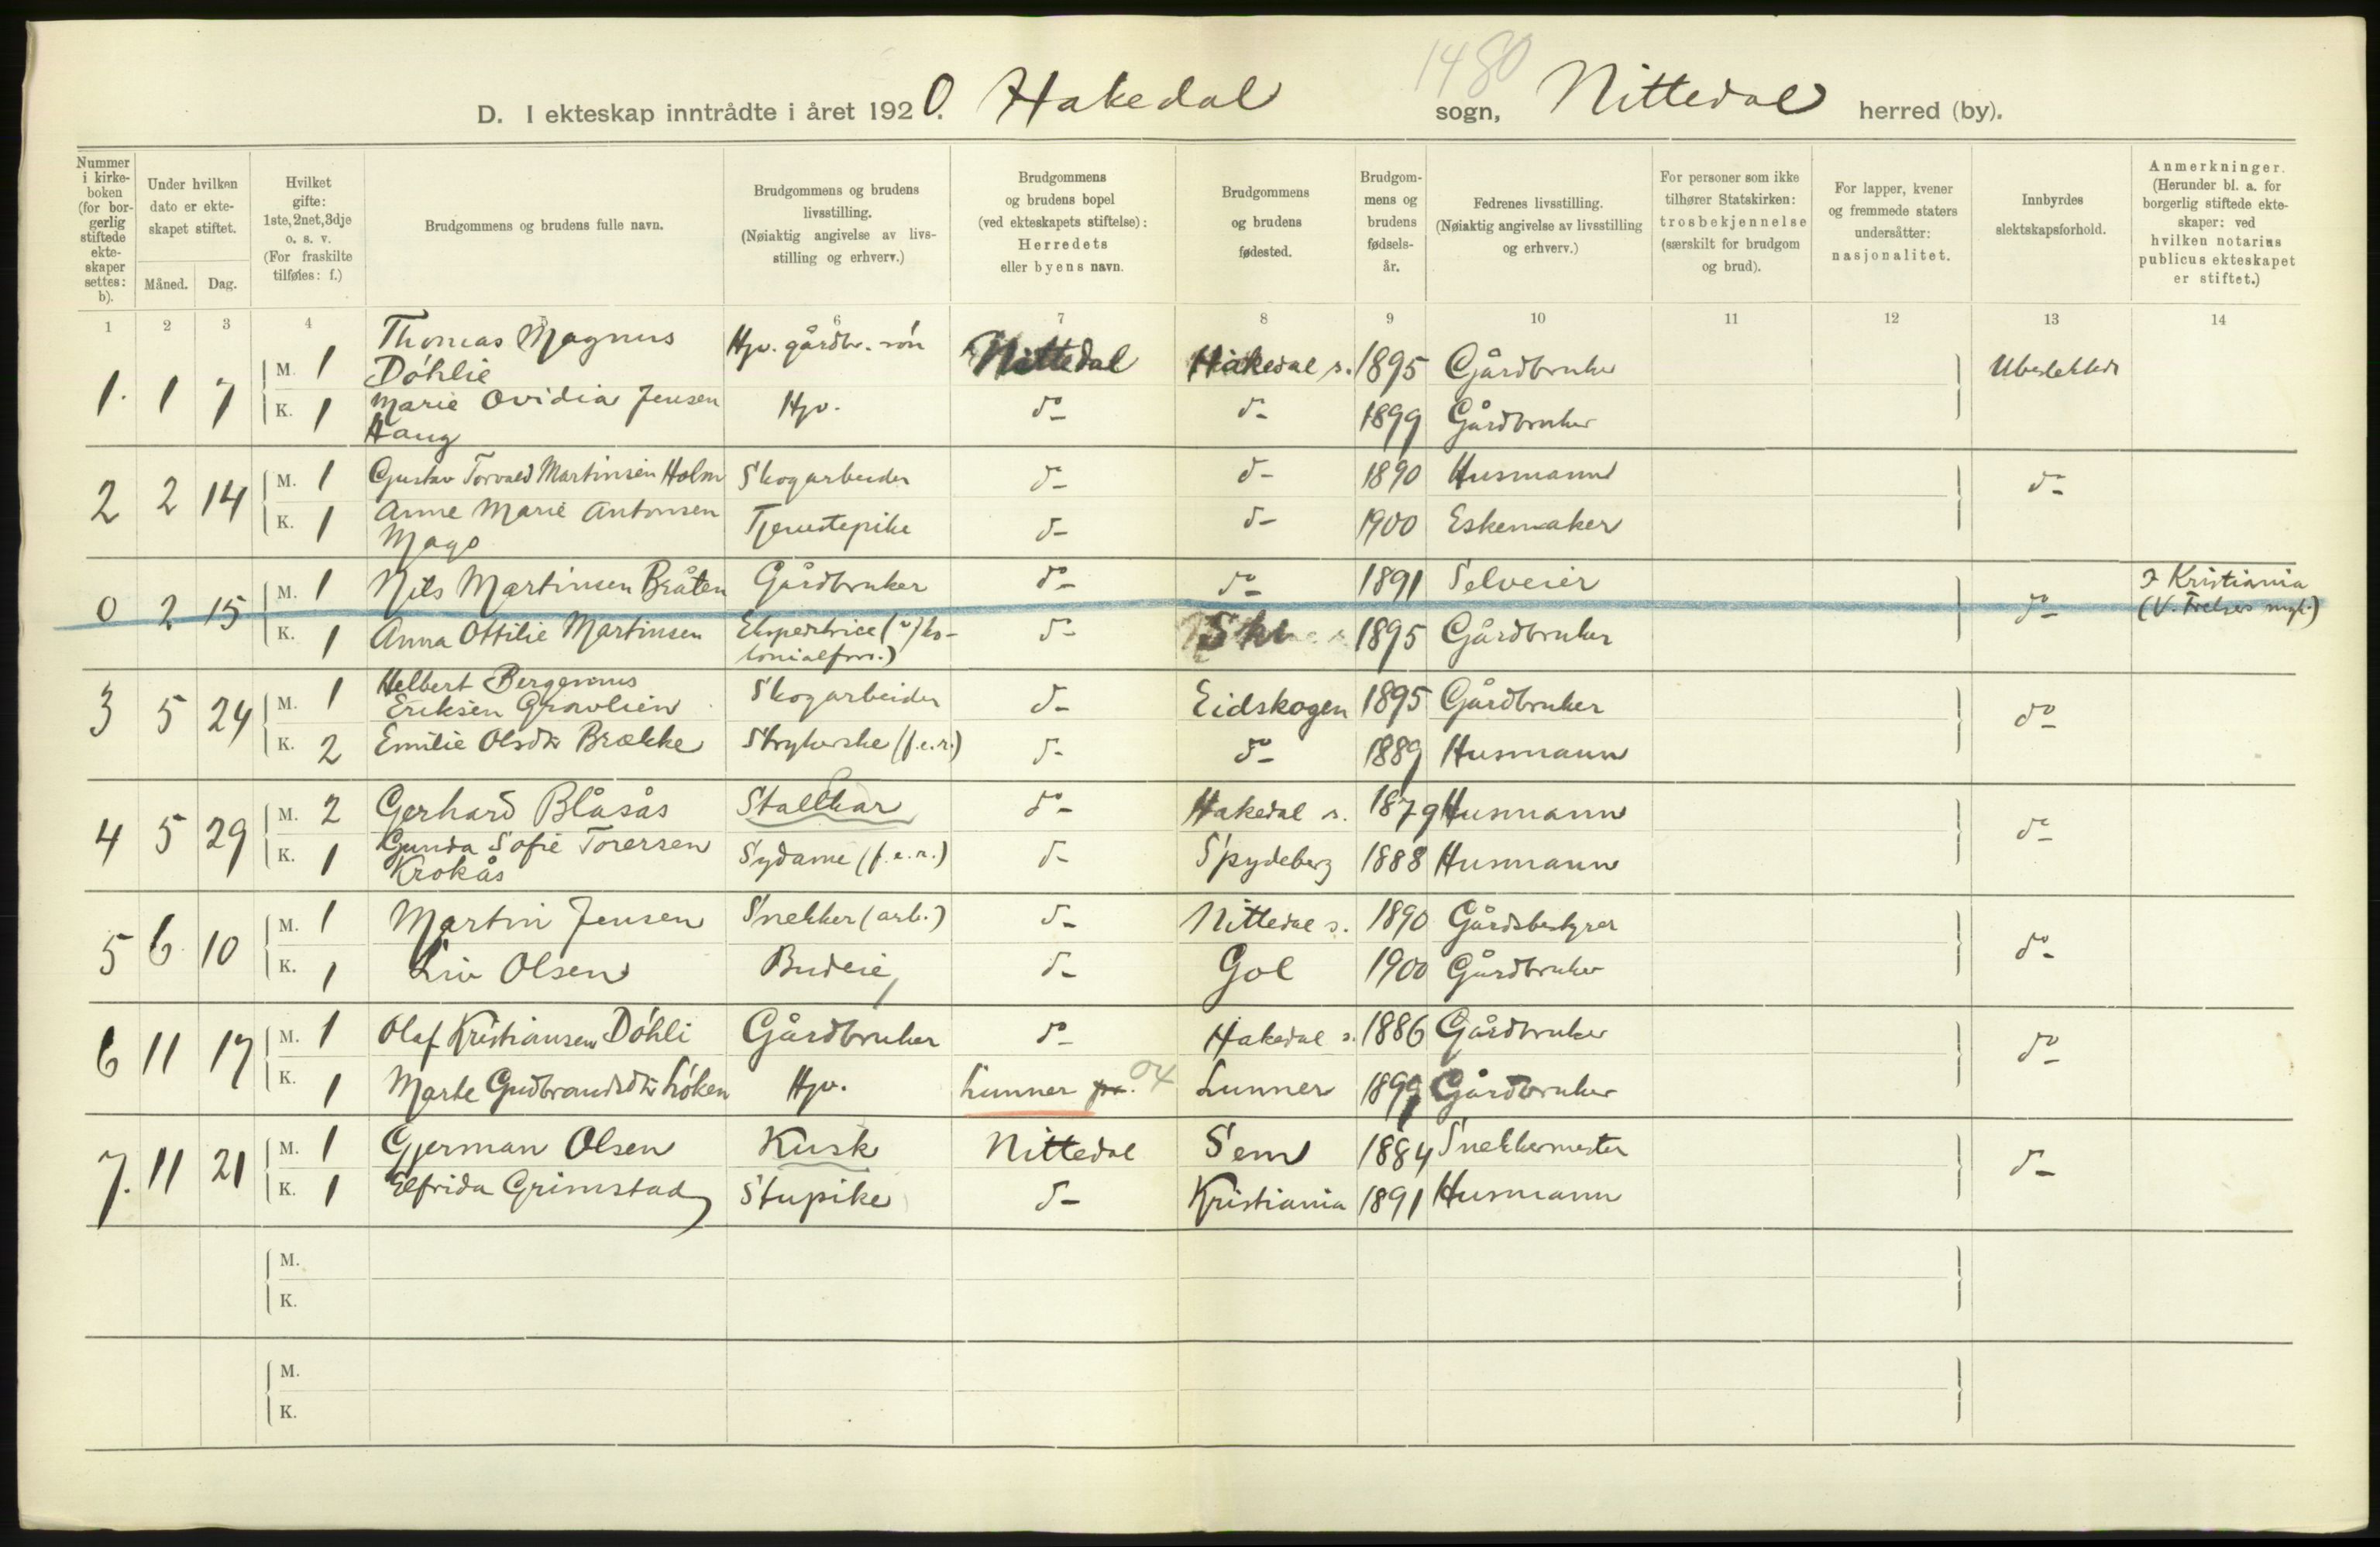 1480
D. I ekteskap inntrådte i året 1920. Hakedal sogn, Nittedal herred (by).
Nummer i kirkeboken (for borgerlig stiftede ekteskaper settes: b).
Under hvilken dato er ekteskapet stiftet.
Måned. Dag.
Hvilket gifte: 1ste, 2net, 3dje o. s. v. (For fraskilte tilføies: f.)
Brudgommens og brudens fulle navn.
Brudgommens og brudens livsstilling. (Nøiaktig angivelse av livsstilling og erhverv.)
Brudgommens og brudens bopel (ved ekteskapets stiftelse): Herredets eller byens navn.
Brudgommens og brudens fødested.
Brudgommens og brudens fødselsår.
Fedrenes livsstilling. (Nøiaktig angivelse av livsstilling og erhverv.)
For personer som ikke tilhører Statskirken: trosbekjennelse (særskilt for brudgom og brud).
For lapper, kvener og fremmede staters undersåtter: nasjonalitet.
Innbyrdes slektskapsforhold.
Anmerkninger. (Herunder bl. a. for borgerlig stiftede ekteskaper: ved hvilken notarius publicus ekteskapet er stiftet.)
1 2 3 4 5 6 7 8 9 10 11 12 13 14
1. 1 7 M. 1 Thomas Magnus Døhlie Hjv. gårdbr. søn Nittedal Hakedal s. 1895 Gårdbruker Ubeslektede
K. 1 Marie Ovidia Jensen Haug Hjv. do do 1899 Gårdbruker
2 2 14 M. 1 Gustav Torvald Martinsen Holm Skogarbeider do do 1890 Husmann do
K. 1 Anne Marie Antonsen Mago Tjenestepike do do 1900 Eskemaker
0 2 15 M. 1 Nils Martinsen Bråten Gårdbruker do do 1891 Selveier do I Kristiania (V. Frelsers mgh.)
K. 1 Anna Ottilie Martinsen Ekspeditrice (v/ kolonialforr.) do 1895 Gårdbruker
3 5 24 M. 1 Helbert Bergerius Eriksen Gravlien Skogarbeider do Eidskogen 1895 Gårdbruker do
K. 2 Emilie Olsdtr Brække Strykerske (f.e.r.) do do 1889 Husmann
4 5 29 M. 2 Gerhard Blåsås Stallkar do Hakedal s. 1879 Husmann do
K. 1 Gunda Sofie Torersen Krokås Sydame (f.e.r.) do Spydeberg 1888 Husmann
5 6 10 M. 1 Martin Jensen Snekker (arb.) do Nittedal s. 1890 Gårdsbestyrer do
K. 1 Liv Olsen Budeie do Gol 1900 Gårdbruker
6 11 17 M. 1 Olaf Kristiansen Døhli Gårdbruker do Hakedal s. 1886 Gårdbruker do
K. 1 Marte Gudbrandsdtr Løken Hjv. Lunner 04 Lunner 1899 Gårdbruker
7. 11 21 M. 1 Gjerman Olsen Kusk Nittedal Sem 1884 Snekkermester do
K. 1 Elfrida Grimstad Stupike do Kristiania 1891 Husmann
M.
K.
M.
K.